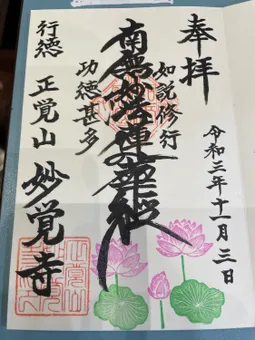 奉拝
令和三年十一月三日
如説修行
南無妙法蓮華経
功徳甚多
行徳
正覚山 妙覚寺